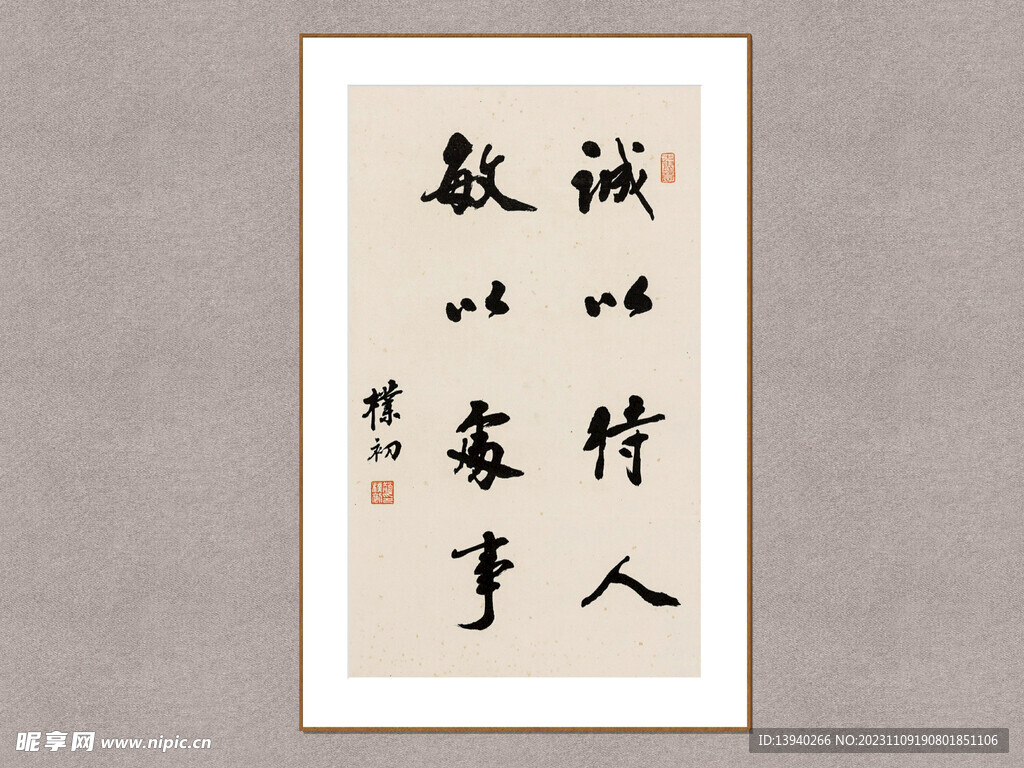 誠以待人
敏以處事
樸初
昵享网 www.nipic.cn
ID:13940266 NO:20231109190801851106